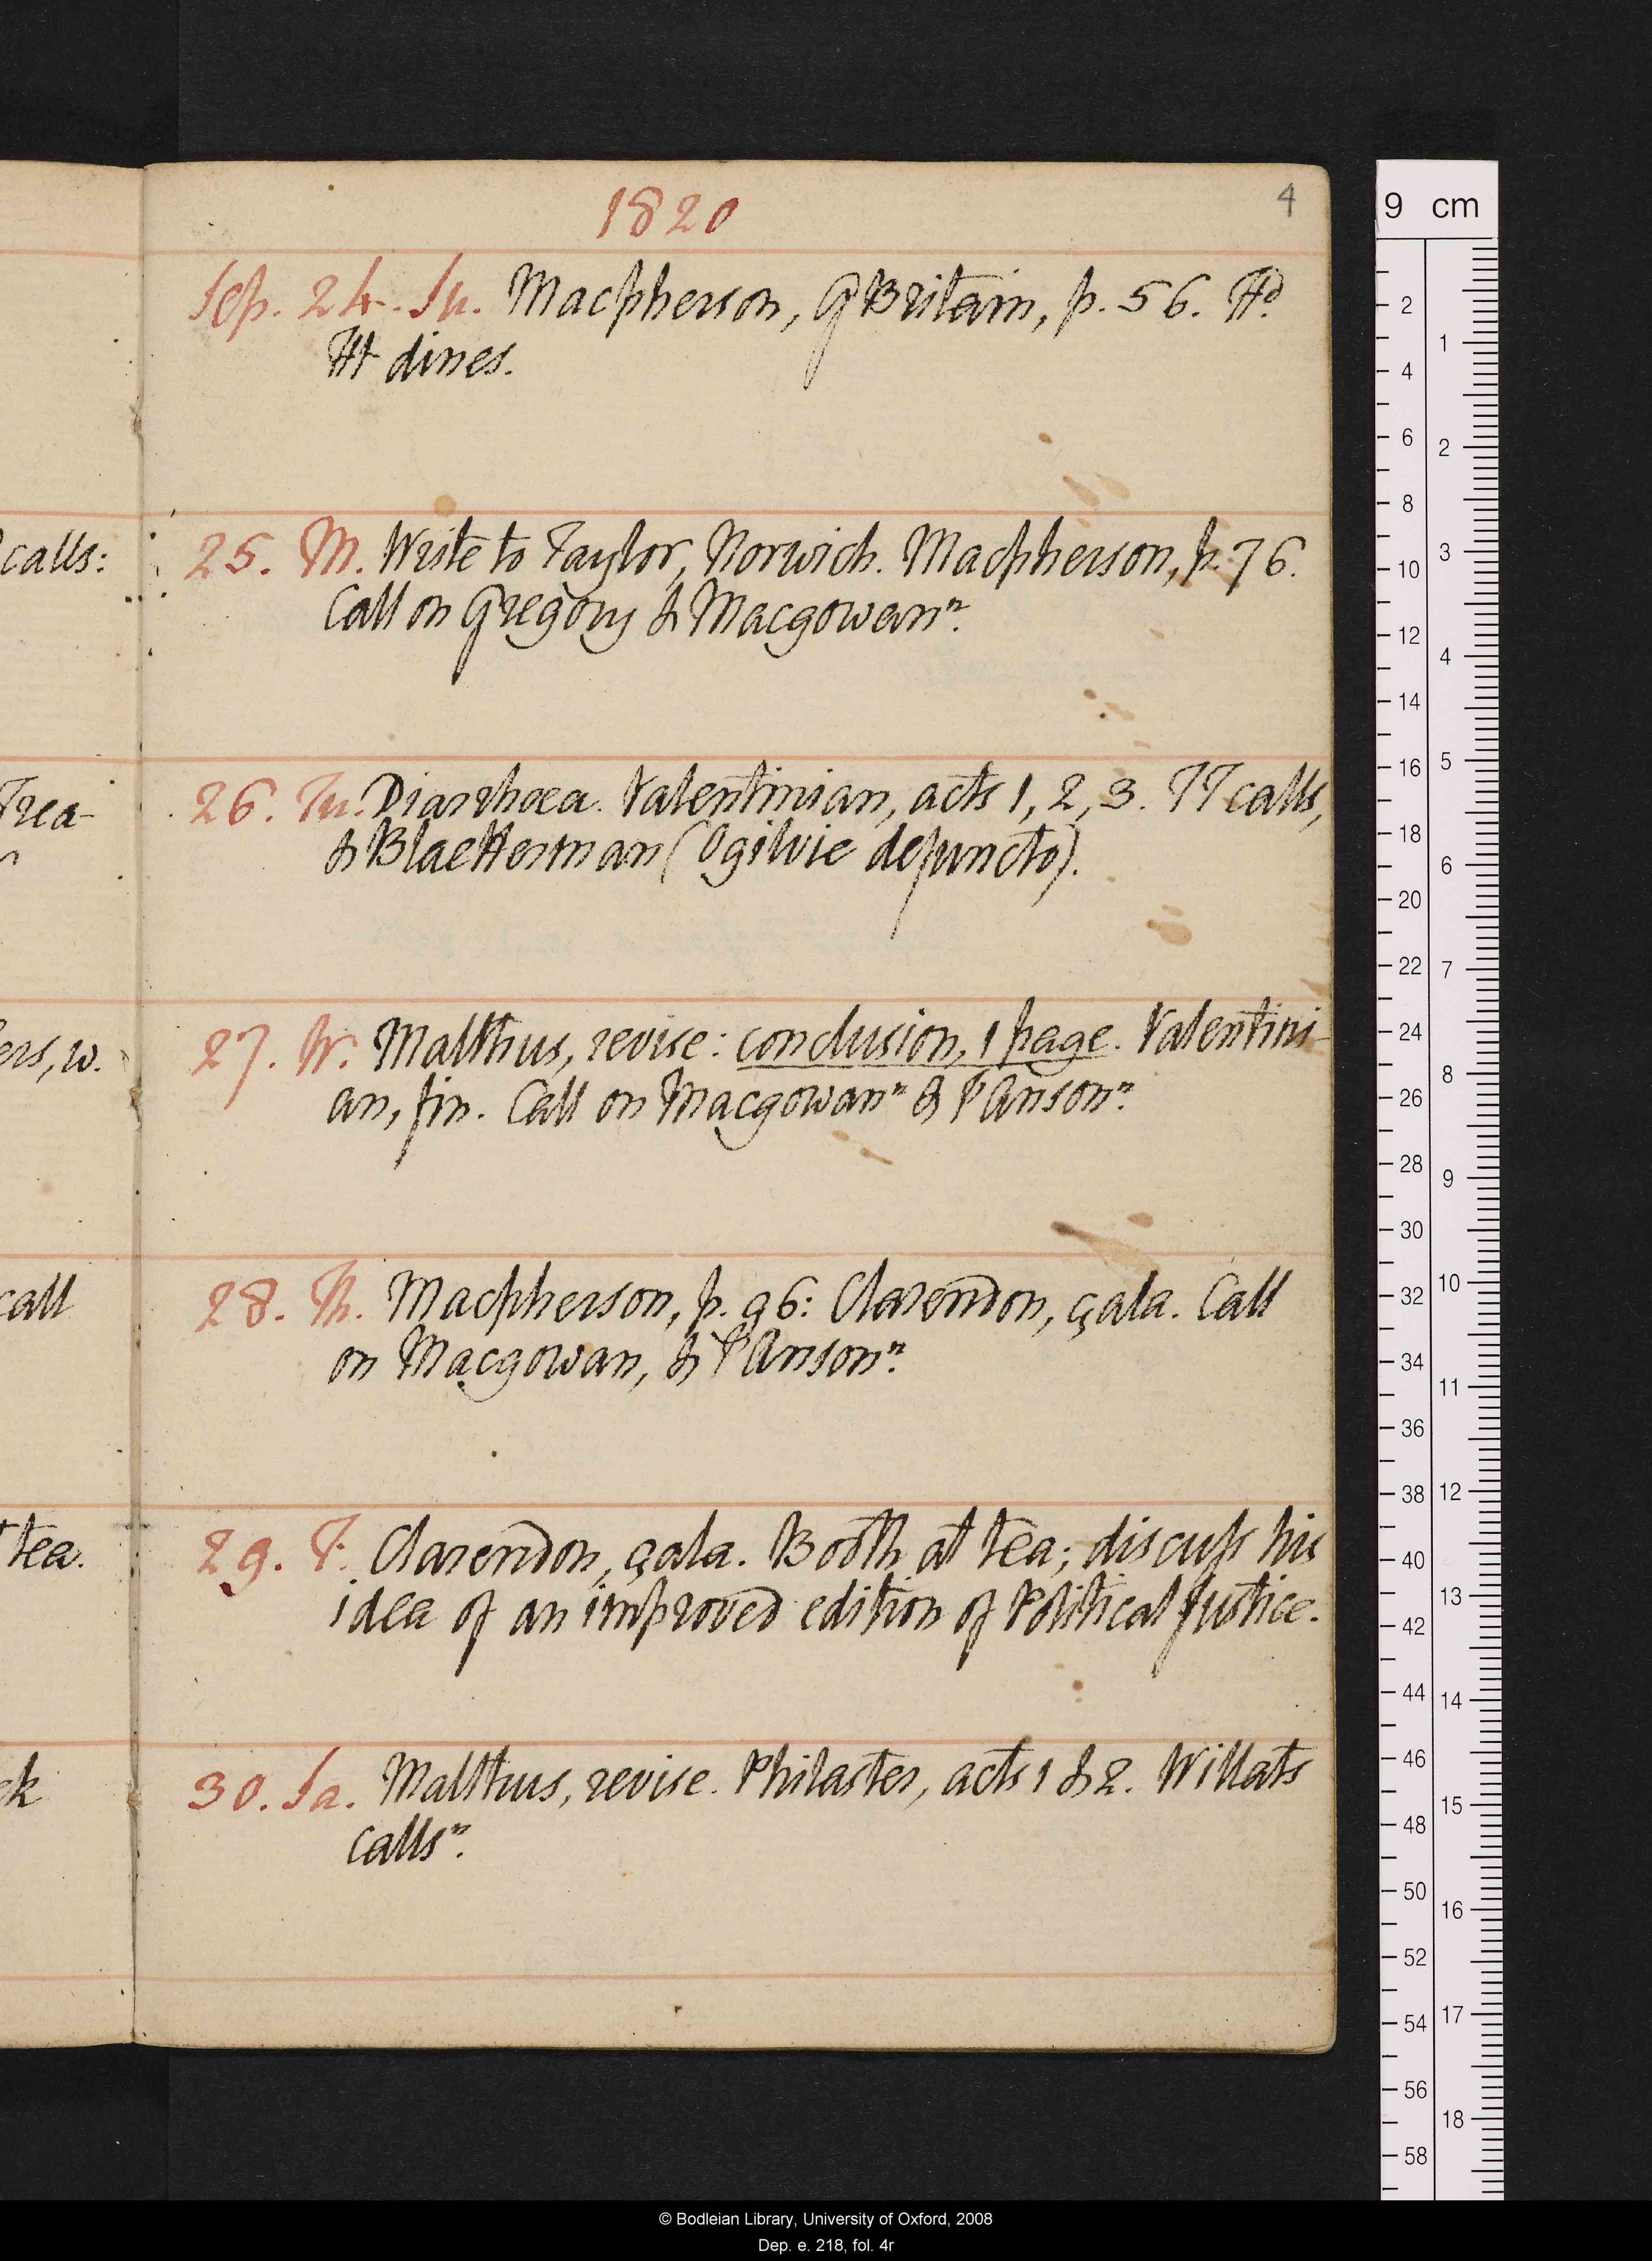 1820
4
Sep. 24. Su. Macpherson, Gt Britain, p. 56. Hd
Ht dines.
calls:
25. M. Write to Taylor, Norwich. Macpherson, p. 76.
Call on Gregory & Macgowan n.
Trea-
26. Tu. Diarrhœa. Valentinian, acts 1, 2, 3. TT calls,
& Blaetterman (Ogilvie defuncto).
ers, w.
27. W. Malthus, revise: conclusion, 1 page. Valentini-
an, fin. Call on Macgowan n & I'Anson n.
call
28. Th. Macpherson, p. 96: Clarendon, çala. Call
on Macgowan, & I'Anson n.
tea.
29. F. Clarendon, çala. Booth at tea; discuss his
idea of an improved edition of Political Justice.
k
30. Sa. Malthus, revise. Philaster, acts 1 & 2. Willats
calls n.
9 cm
2
4
6
8
10
12
14
16
18
20
22
24
26
28
30
32
34
36
38
40
42
44
46
48
50
52
54
56
58
1
2
3
4
5
6
7
8
9
10
11
12
13
14
15
16
17
18
© Bodleian Library, University of Oxford, 2008
Dep. e. 218, fol. 4r